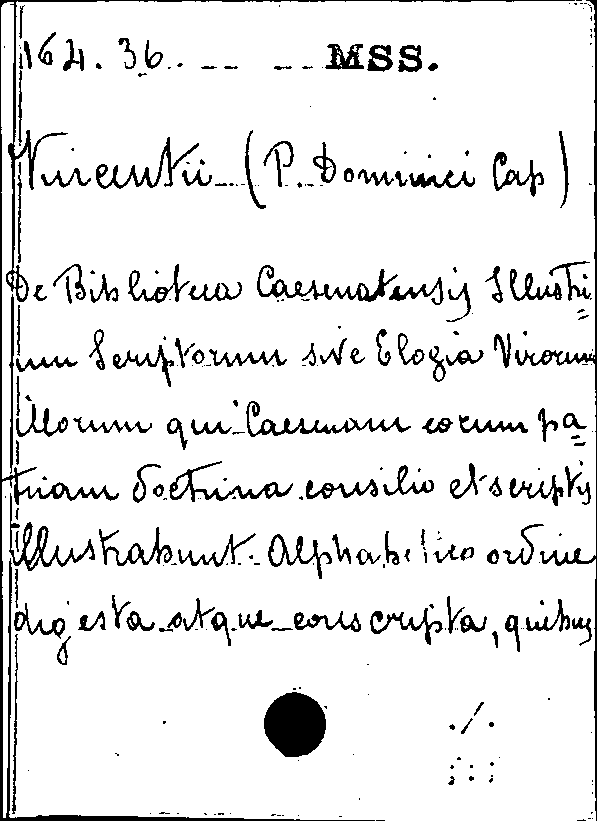 164.36. -- -- MSS.
Vincentii (P. Dominici Cap)
De Biblioteca Caesenatensis Illustri=
um Scriptorum sive Elogia Virorum
illorum qui Caesenam eorum pa=
triam doctrina consilio et scriptis
illustrabunt. Alphabetico ordine
digesta atque conscripta, quibus
./.